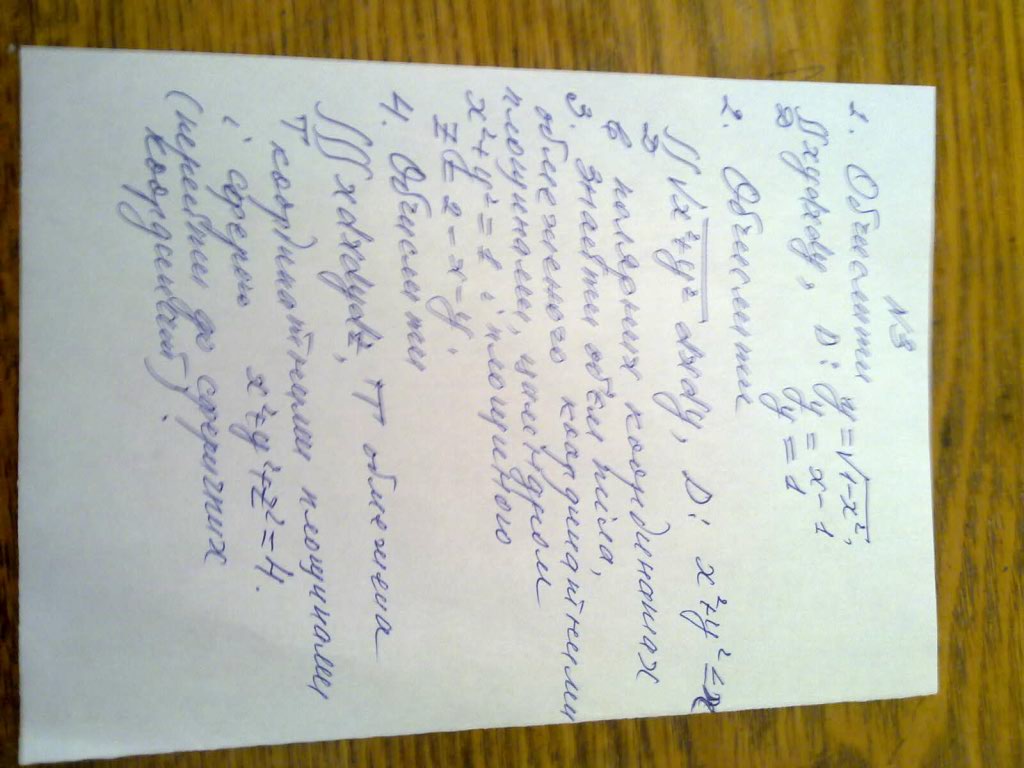 N3
1. Обчислити
∬xydxdy, D: y=√1-x²,
D y = x-1
y = 1
2. Обчислити
∬√x²+y² dxdy, D: x²+y² ≤ x
D
в полярних координатах
3. Знайти обєм тіла,
обмеженого координатними
площинами, циліндром
x²+y²=1 і площиною
z = 2-x-y.
4. Обчислити
∭xdxdydz, T обмежена
T координатними площинами
і сферою x²+y²+z²=4.
(перейти до сферичних
координат).